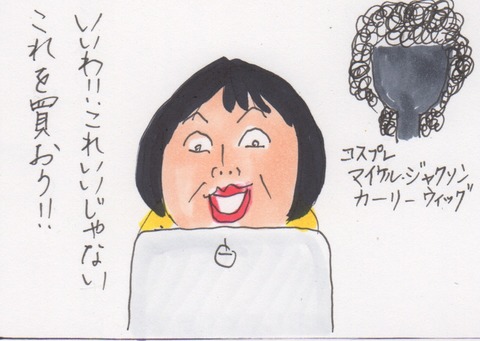 いいわ!!これいいじゃない
これを買おう!!
コスプレ
マイケル・ジャクソン
カーリーウィッグ